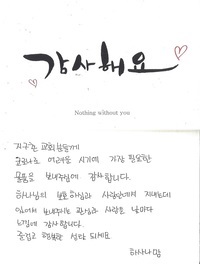 감사해요
Nothing without you
지구촌 교회분들께
코로나로 어려운 시기에 가장 필요한
물품을 보내주심에 감사합니다.
하나님의 부르심과 사랑안에서 지내는데
있어서 보내주시는 관심과 사랑을 날마다
느낌에 감사합니다.
즐겁고 행복한 성탄 되세요
하사나맘